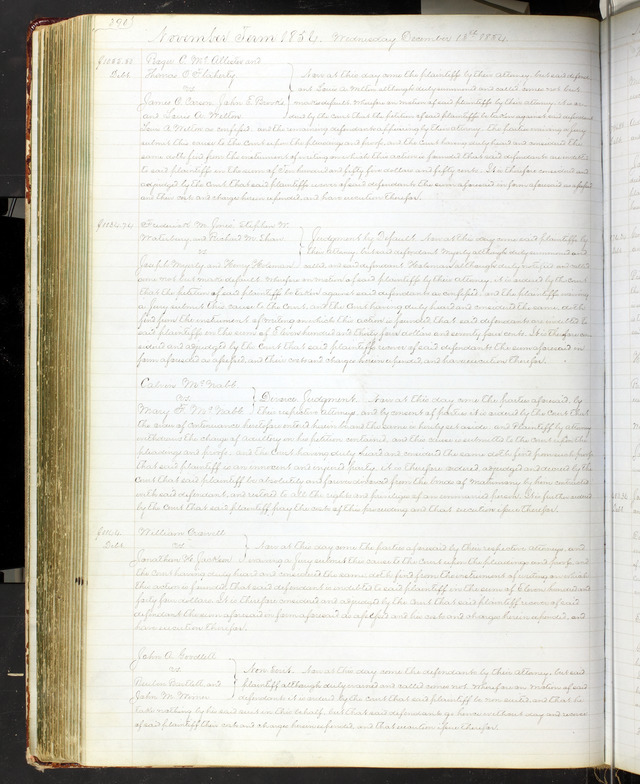 290
November Term 1854. Wednesday December 13th 1854.
Roger C. McAllister and
Debt. Thomas C. Flaherty
vs
James A. Carson John S. Brooks
and Louis A. Welton
Now at this day come the plaintiffs by their Attorney, but said defend
ant Louis A. Welton although duly summoned and called comes not but
makes default. Wherefore on motion of said plaintiffs by their attorney it is or
dered by the Court that the petition of said plaintiffs be taken against said defendant
Louis A. Welton as confessed, and the remaining defendants appearing by their attorney. The parties waiving a jury
submit this cause to the Court upon the pleadings and proofs, and the Court having duly heard and considered the
same doth find from the instrument of writing on which this action is founded that said defendants are indebted
to said plaintiffs in the sum of hundred and fifty five dollars and fifty cents. It is therefore considered and
adjudged by the Court that said plaintiffs recover of said defendants the sum aforesaid in form aforesaid
and costs and charges herein expended, and have execution therefor.
Frederick M. Stephen W.
Waterbury and Richard M.
vs
Joseph Murphy and Henry Holsman
Judgment by Default. Now at this day come said plaintiffs by
their Attorney, but said defendant Murphy although duly summoned and
called, and said defendant Holsman although duly notified and called
come not but make default. Wherefore on motion of said plaintiffs by their attorney, it is ordered by the Court
that the petition of said plaintiffs be taken against said defendants as confessed, and the plaintiffs waiving
a jury submit this cause to the Court, and the Court having duly heard and considered the same doth
find from the instrument of writing on which this action is founded, that said defendants are indebted to
said plaintiffs in the sum of Eleven hundred and thirty four dollars and seventy four cents. It is therefore con
sidered and adjudged by the Court that said plaintiffs recover of said defendants the sum aforesaid in
form aforesaid and their costs and charges herein expended, and have execution therefor.
McNabb
vs
Mary F. McNabb
Divorce Judgment. Now at this day come the parties aforesaid, by
their respective attorneys, and by consent of parties it is ordered by the Court that
the order of continuance heretofore entered herein be and the same is hereby set aside, and Plaintiff by attorney
withdraws the charge of adultery in his petition contained, and this cause is submitted to the Court upon the
pleadings and proofs, and the Court having duly heard and considered the same doth find from such proofs
that said plaintiff is an innocent and injured party, it is therefore ordered, adjudged and decreed by the
Court that said plaintiff be absolutely and forever divorced from the bonds of Matrimony by him contracted
with said defendant, and restored to all the rights and privileges of an unmarried person. It is further ordered
by the Court that said plaintiff pay the costs of this proceeding and that execution issue therefor.
Debt. William
vs
Jonathan H. Jackson
Now at this day come the parties aforesaid by their respective attorneys, and
waiving a Jury submit this cause to the Court upon the pleadings and proofs and
the Court having duly heard and considered the same, doth find from the instrument of writing on which
this action is founded, that said defendant is indebted to said plaintiff in the sum of Eleven hundred and
forty four dollars. It is therefore considered and adjudged by the Court that said plaintiff recover of said
defendant the sum aforesaid in form aforesaid and his costs and charges herein expended, and
have execution therefor.
John A. Goodlett
vs
Reuben Bartlett and
John M. Wimer
Non Suit. Now at this day come the defendants by their Attorney, but said
plaintiff although duly warned and called comes not. Wherefore on motion of said
defendants it is ordered by the Court that said plaintiff be non suited, and that he
take nothing by his said suit in this behalf, but that said defendants go hence without day and recover
of said plaintiff their costs and charges herein expended, and that execution issue therefor.